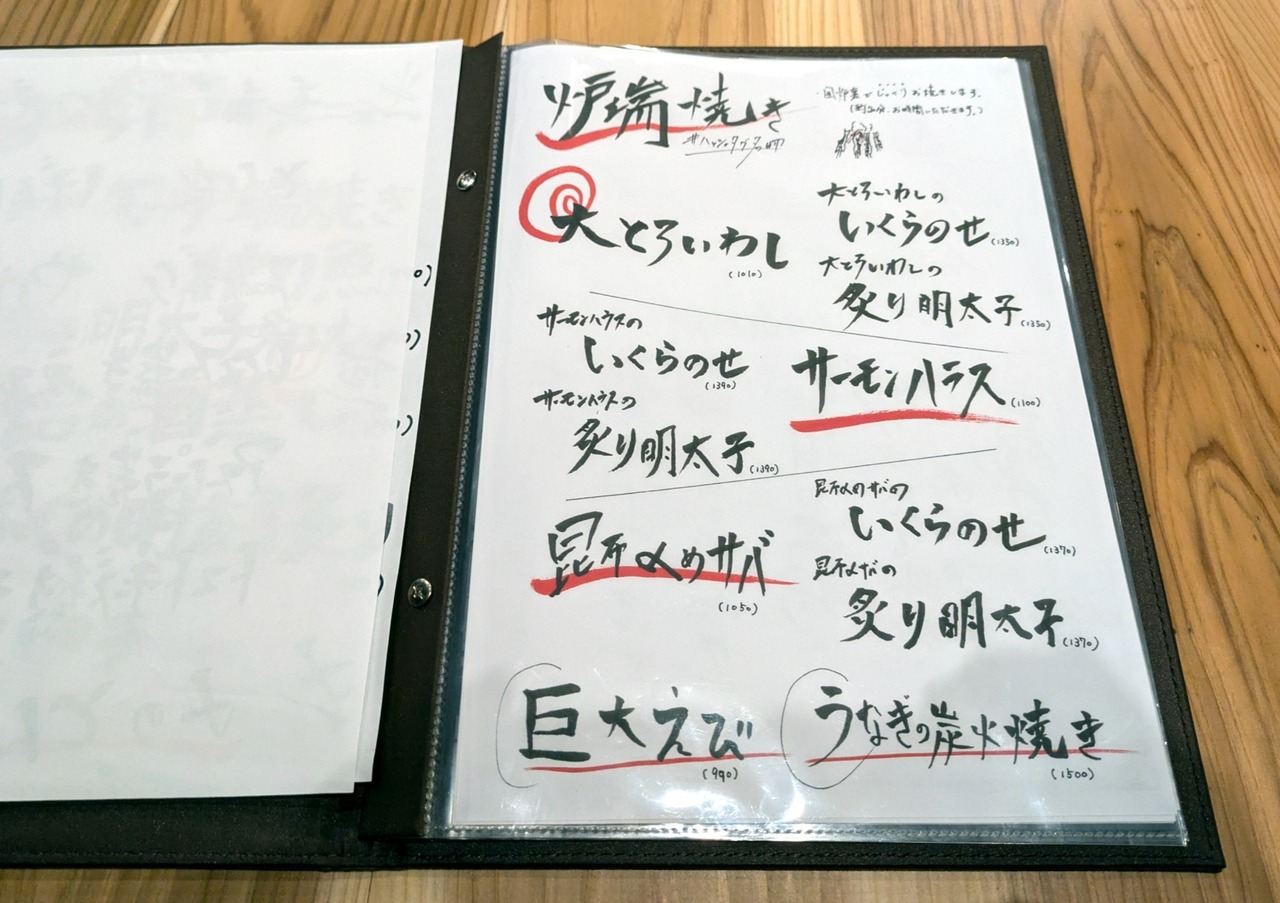 炉端焼き
#ハッシュタグ名晒
・囲炉裏でじっくりお焼きします。
(約20分、お時間いただきます。)
大とろいわし
(1010)
大とろいわしの
いくらのせ(1330)
大とろいわしの
炙り明太子(1350)
サーモンハラスの
いくらのせ
(1390)
サーモンハラス(1100)
サーモンハラスの
炙り明太子(1390)
昆布〆めサバ
(1050)
昆布〆めサバの
いくらのせ(1370)
昆布〆サバの
炙り明太子(1370)
巨大えび
(990)
うなぎの炭火焼き
(1500)